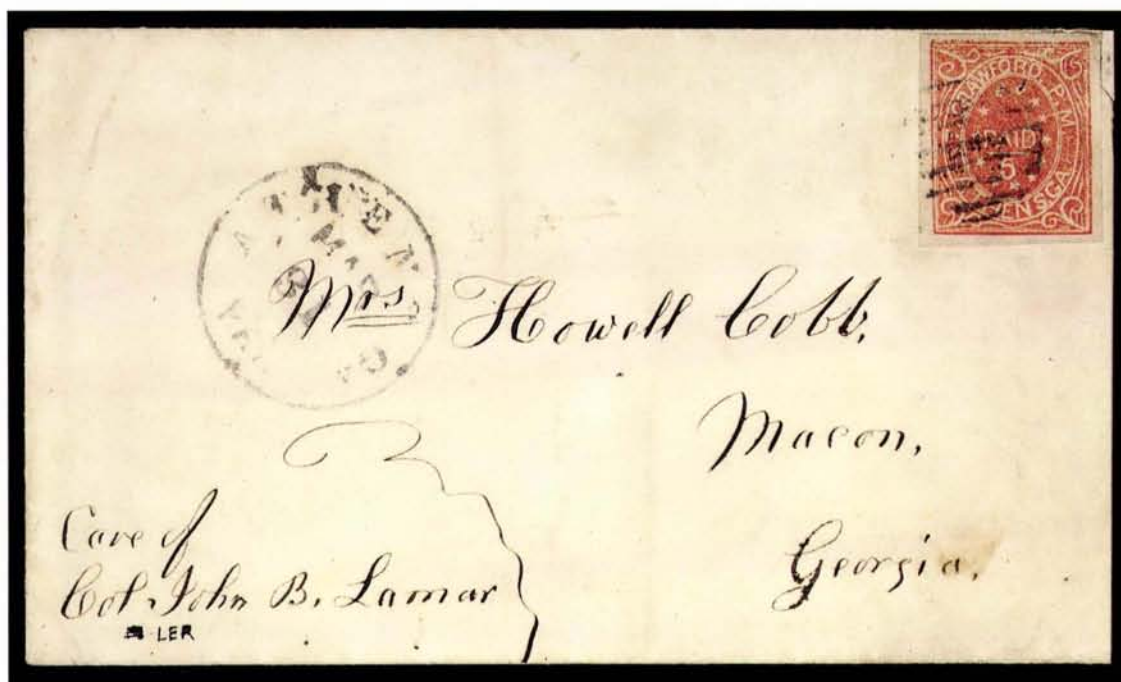 CRAWFORD, P.M.
PAID
5
ENS GA
ATHEN
MAR
GA
Mrs. Howell Cobb,
Macon,
Georgia.
Care of
Col. John B. Lamar
LER